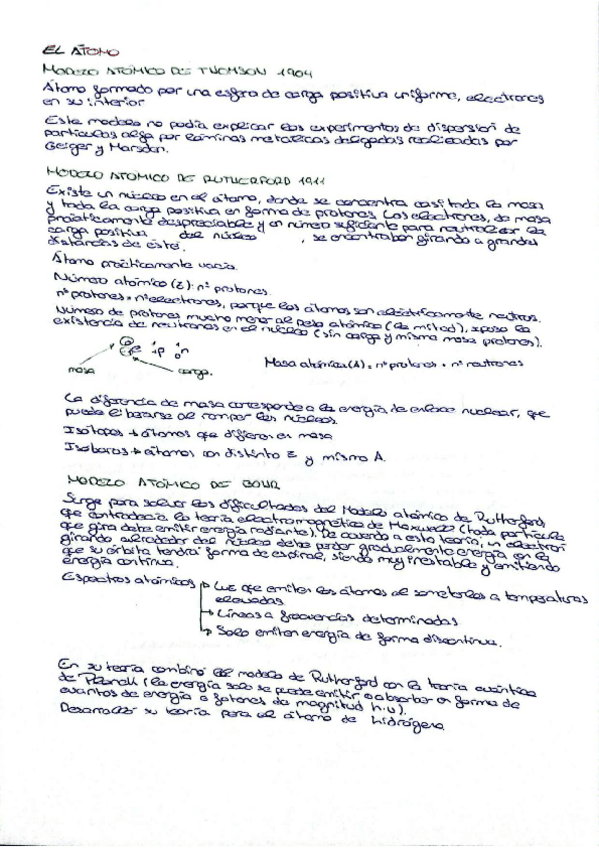 EL ÁTOMO
MODELO ATÓMICO DE THOMSON 1904
Átomo formado por una esfera de carga positiva uniforme, electrones
en su interior
Este modelo no podía explicar los experimentos de dispersión de
partículas alfa por láminas metálicas delgadas realizadas por
Geiger y Marsden.
MODELO ATÓMICO DE RUTHERFORD 1911
Existe un núcleo en el átomo, donde se concentra casi toda la masa
y toda la carga positiva en forma de protones. Los electrones, de masa
prácticamente despreciable y en número suficiente para neutralizar la
carga positiva del núcleo, se encontraban girando a grandes
distancias de éste.
Átomo prácticamente vacío.
Número atómico (Z): nº protones.
nº protones = nº electrones, porque los átomos son eléctricamente neutros.
Número de protones mucho menor al peso atómico (la mitad), supuso la
existencia de neutrones en el núcleo (sin carga y misma masa protones).
masa carga.
Masa atómica (A) = nº protones + nº neutrones
La diferencia de masa corresponde a la energía de enlace nuclear, que
puede liberarse al romper los núcleos.
Isótopos → átomos que difieren en masa
Isóbaros → átomos con distinto Z y mismo A.
MODELO ATÓMICO DE BOHR
Surge para solver las dificultades del Modelo atómico de Rutherford,
que contradecía la teoría electromagnética de Maxwell (toda partícula
que gira debe emitir energía radiante). De acuerdo a esta teoría, un electrón
girando alrededor del núcleo debe perder gradualmente energía en la
que su órbita tendrá forma de espiral, siendo muy inestable y emitiendo
energía continua.
Espectros atómicos → Luz que emiten los átomos al someterlos a temperaturas
elevadas
→ Líneas a frecuencias determinadas
→ Solo emiten energía de forma discontinua.
En su teoría combinó el modelo de Rutherford con la teoría cuántica
de Planck (la energía solo se puede emitir o absorber en forma de
cuantos de energía o fotones de magnitud h·υ).
Desarrolló su teoría para el átomo de hidrógeno.